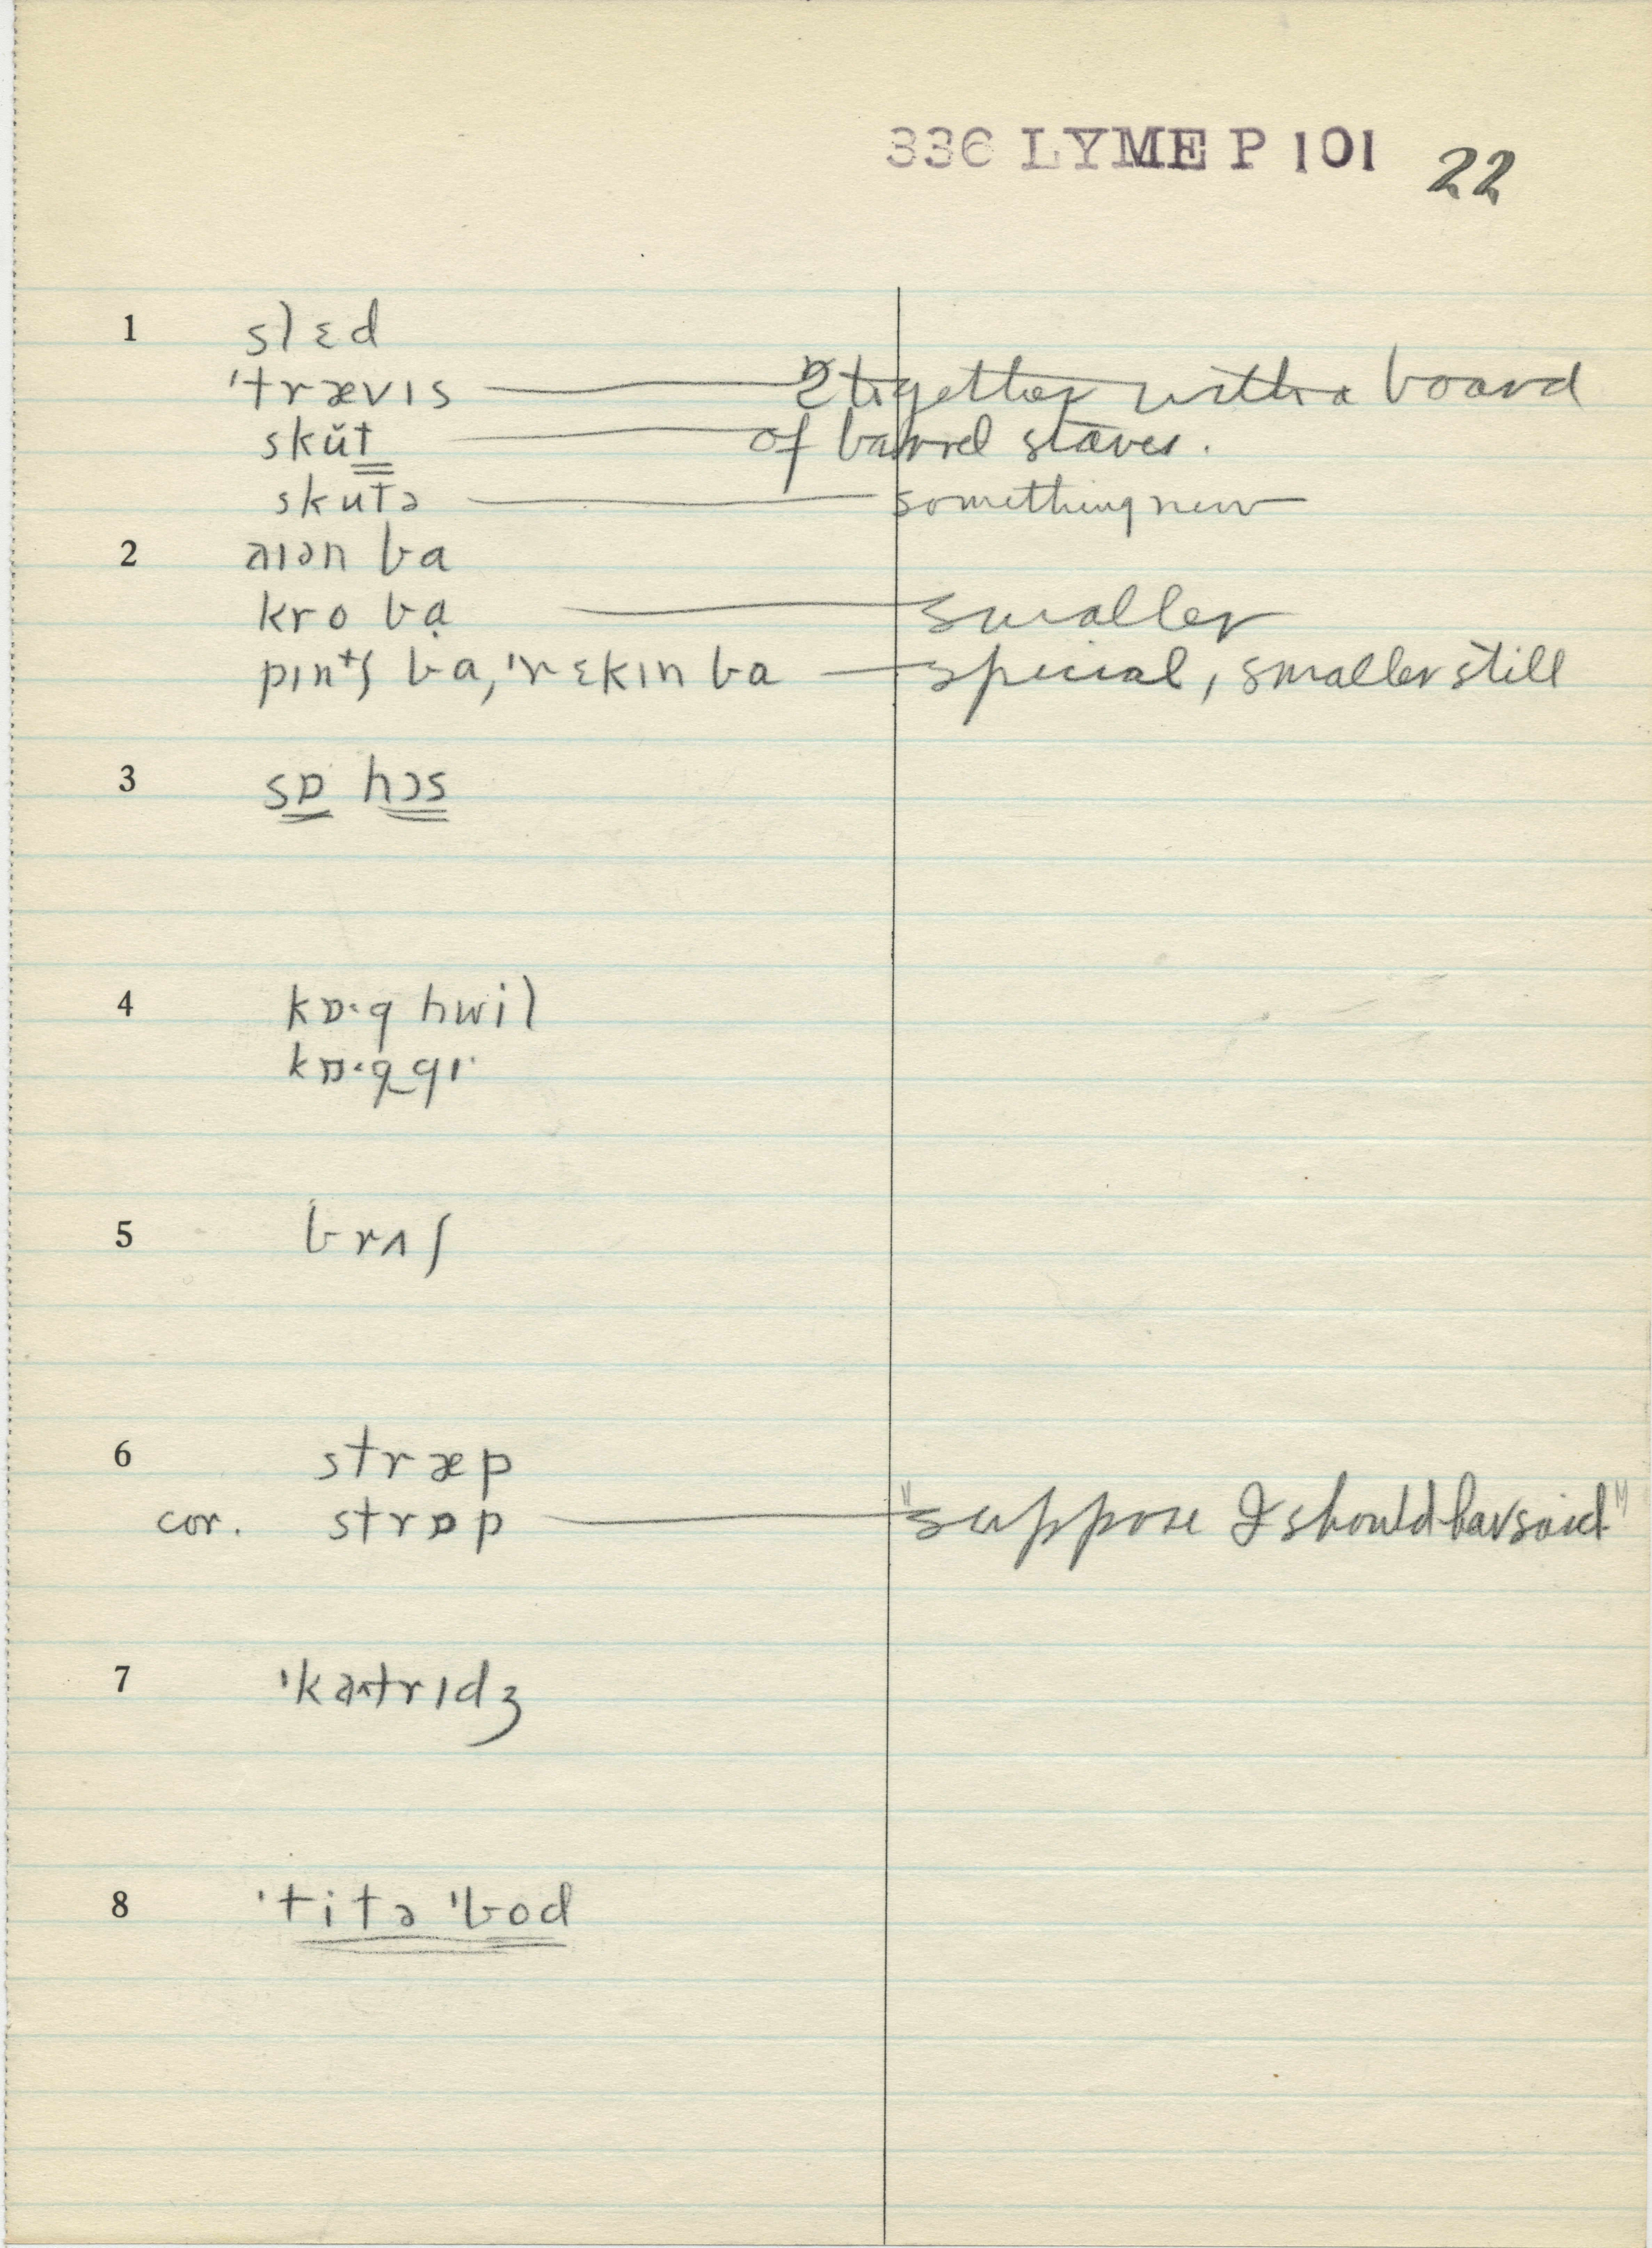 336 LYME P 101 22
1 slɛd
'trævɪs — 2 together with a board
skŭt — of barrel staves.
skutə — something new
2 aɪən ba
kro bạ — smaller
pɪntʃ ba, 'rɛkɪn ba — special, smaller still
3 sɒ hɔs
4 kɒ·g hwil
kɒ·g gɪ
5 brʌʃ
6 stræp
cor. strɒp — "suppose I should hav said"
7 'katrɪdʒ
8 'titə 'bod